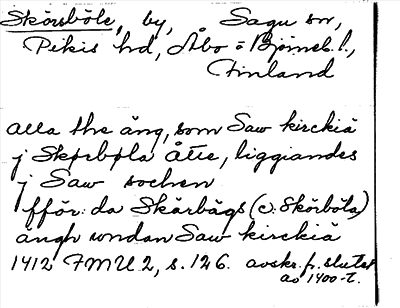 Skörsböle, by, Sagu sn,
Pikis hd, Åbo = Björneb. l.,
Finland
alla the äng, som Saw kirckiä
j Skørbøla åtte, liggiandes
j Saw sochen
fför: da Skärbägs (c: Skörböla)
ängh undan Saw kirckiä
1412 FMU 2, s. 126. avskr. fr. slutet
av 1400-t.